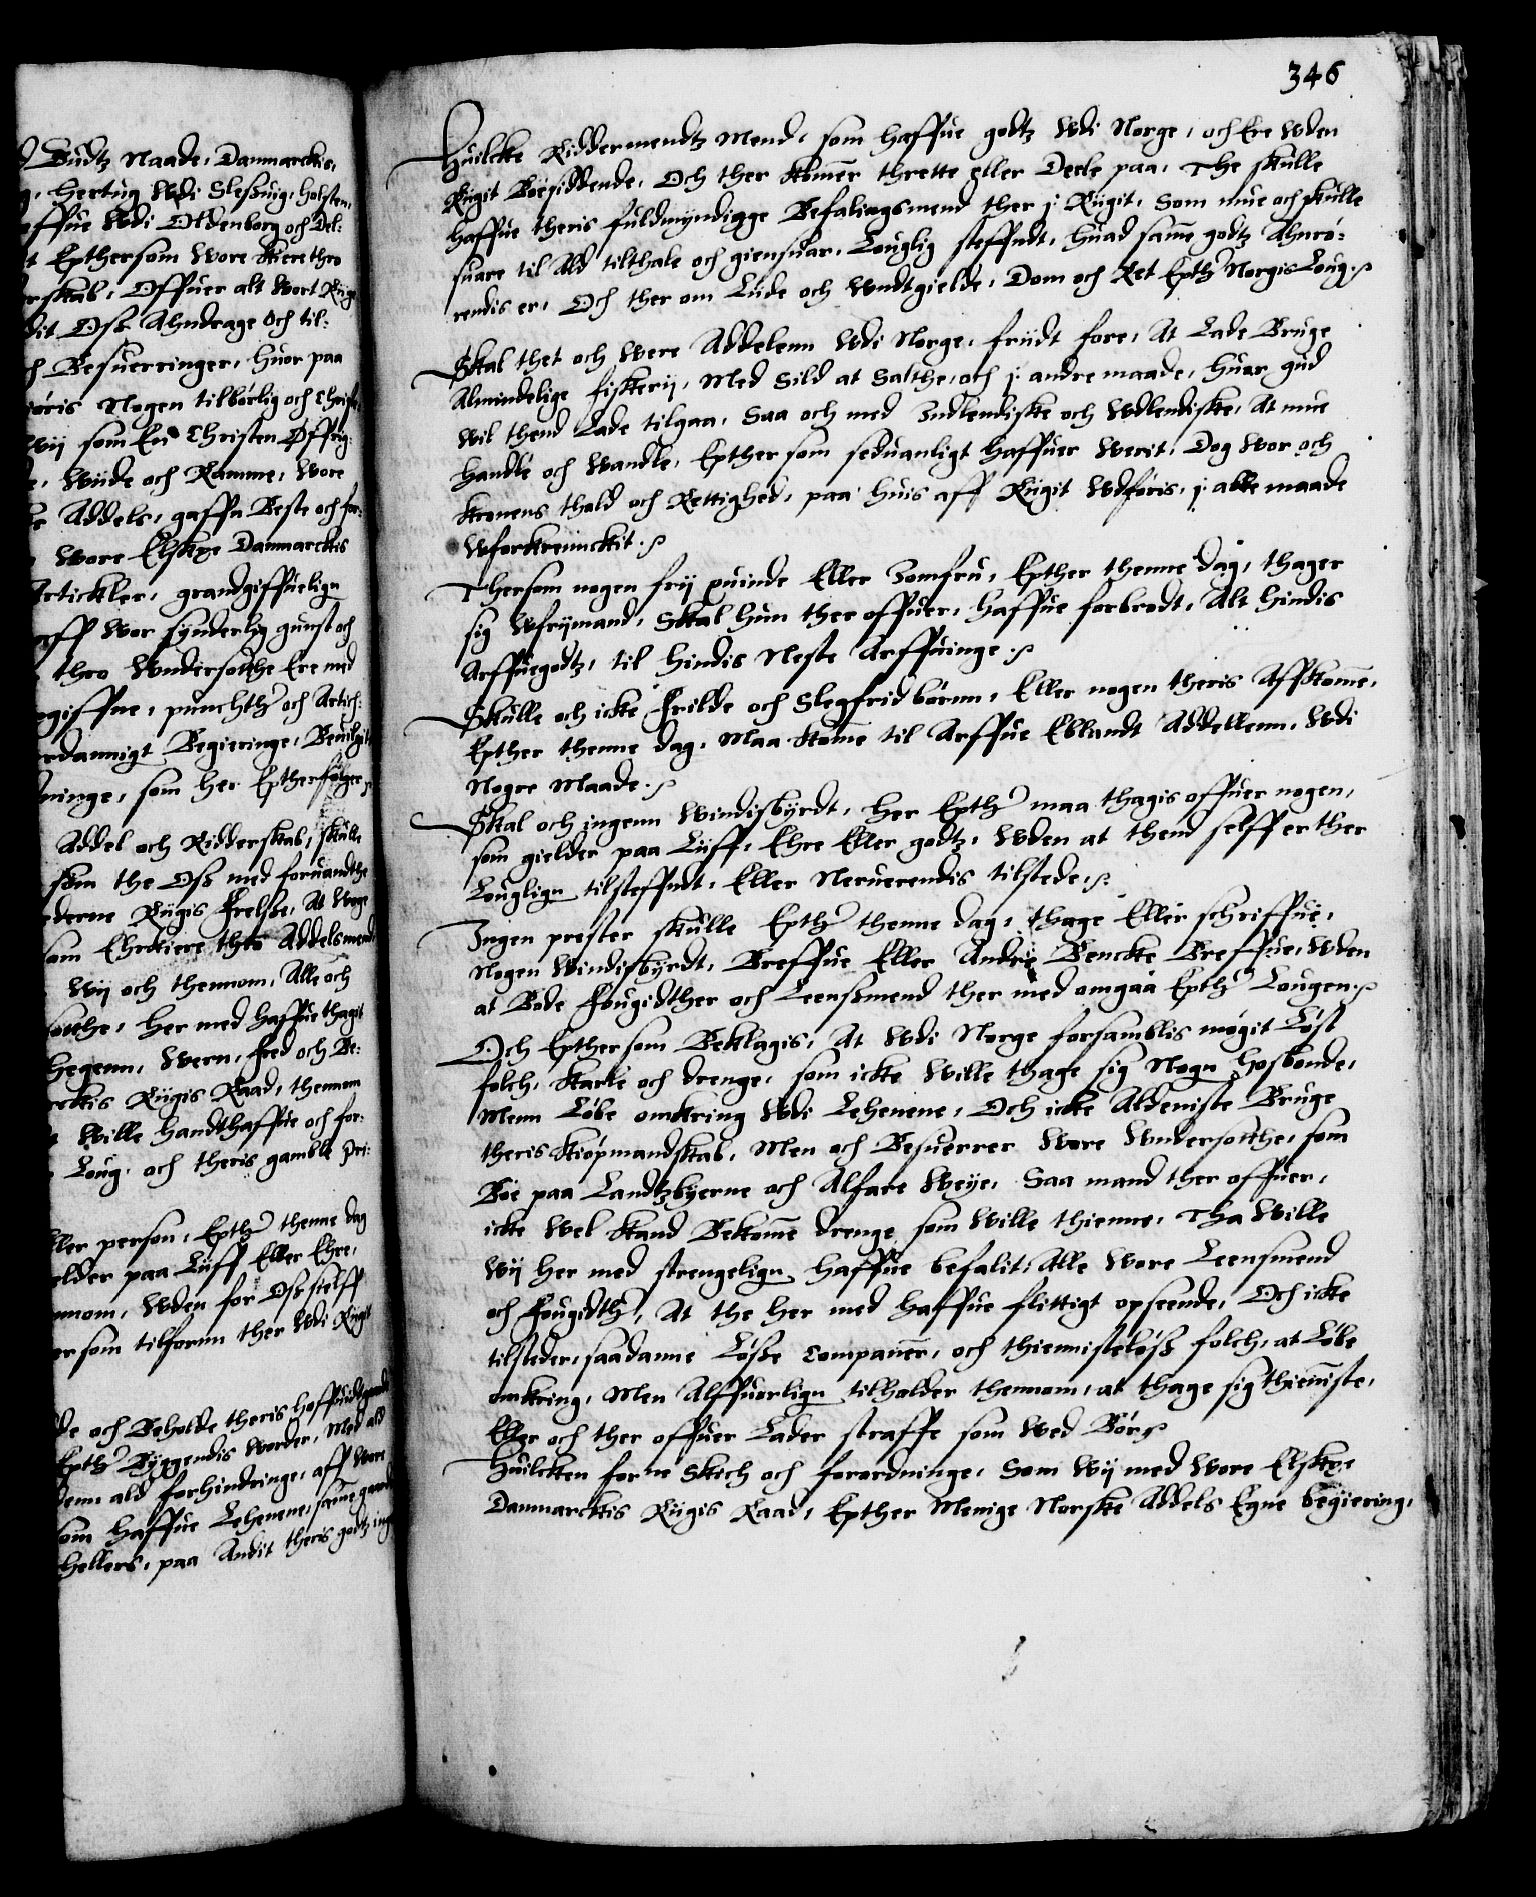 Gudtz Naade, Danmarckis,
Hertug Wdi Slesuig, Holsten,
Wdi Oldenborg och Del:
Epthersom Wore Kiere thro
Offuer alt Wort Riige
Osz Ahndrage och til:
Besuerringer, huor paa
Nogen tilbørlig och Christ
wij som En Christen Øffrig:
Wiide och Ramme, Wore
Addels, gaffn Beste och for:
Wore Elskte Danmarckis
Artickler, grandgiffuelign
aff wor synderlig gunst och
thro Wndersotthe Ere med
punchth och Artick:
Begieringe, Beuilgit
som her Epterfølger
Addel och Ridderskab, skulle
som the Osz med foruandthe
Riigis Frelsze, At Wege
Ehrekiere thro Addelsmend
Wij och thennom, Alle och
her med haffue thagit
Hegenn, Wern, Fred och Be:
Riigis Raad, thennom
Wille handthaffue och for:
Loug, och theris gamble Pri:
person, Epth thenne dag
paa Liiff Eller Ehre,
Wden for Osz sielff
som tilfornn ther Wdi Riigit
och Beholde theris hoffuidgaarde
Epth Byggendis Worder, Med ald
ald forhindringe, aff Wore
som haffue Lehnene, same gaarde
hellers, paa Andit theris godtz
346
Huilcke Riddermendtz Mend, som haffue godtz Wdi Norge, och Ere Wden
Riigit Boesiddende, Och ther komer thrette eller Deele paa, The skulle
haffue theris fuldmyndigge Befalingsmend ther j Riigit, Som mue och skulle
suare til Ald tilthale och giensuar, Louglig steffndt, huad same godtz Ahnrø-
rendis er, Och ther om Lide och Wndtgielde, Dom och Ret Epth Norgis Loug.
Skal thet och Were Addelenn Wdi Norge, friidt fore, At Lade Bruge
Almindelige fiskerij, Med Sild at Salthe, och j andre maade, huor gud
Wil thend Lade tilgaa, Saa och med Indlendiske och Wdlendiske, At mue
Handle och Wandle, Epther som seduanligt haffuer Werit, Dog Wor och
Kronens thold och Rettighed, paa huis aff Riigit Wdføris, j alle maade
Wforkrenckit.
Thersom nogen frij quinde Eller Jomfru, Epther thenne dag, thager
sig Wfrijmand, Skal hun ther offuer, haffue forbrodt, Alt hindis
Arffuegodtz, til hindis Neste Arffuinge.
Skulle och icke Frilde och Slegfridbørnn, Eller nogen theris Affkome,
Epther thenne dag, Maa kome til Arffue Eblandt Addellenn, Wdi
Nogre Maade.
Skal och ingenn Windisbyrdt, her Epth maa thagis offuer nogen,
som gielder paa Liiff, Ehre Eller godtz, Wden at thend selff er ther
Louglign tilsteffndt, Eller Neruerendis tilstede.
Ingen prester skulle Epth thenne dag, thage Eller schriffue,
Nogen Windisbyrdt, Breffue Eller Andre Bencke Breffue, Wden
at Bode Fougidther och Leenszmend ther med omgaa Epth Lougen.
Och Epther som Beklagis, At Wdi Norge forsamblis møgit Løst
folch, Karle och drenge, som icke Wille thage sig Nogn Hosbonde,
Menn Løbe omkring Wdi Lehnene, Och icke Aldeniste Bruge
theris Kiøpmandskab, Men och Besuerrer Wore Wndersotthe, som
Boe paa Landtzbyerne och Alfare Weye, Saa mand ther offuer,
icke Wel kand Bekome drenge som Wille thienne, Tha Wille
Wij her med strengelign haffue befalit, Alle Wore Leensmend
och Fougidth, At the her med haffue flittigt opseende, Och icke
tilsteder, saadanne Løsze Companer, och thiennisteløsz folch, at Løbe
omkring, Men Alffuorlign tilholder thennom, at thage sig thienniste,
Eller och ther offuer Lader straffe som Wed Bør
Huilcken forne Skick och forordninge, Som Wij med Wore Elskte
Danmarckis Riigis Raad, Epther Menige Norske Addels Egne begiering,